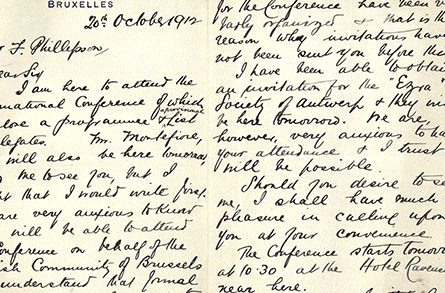 BRUXELLES
20th October 1912
F. Phillipson
Sir
I am here to attend the
national Conference of which
provisional
lose a programme & list
legates. Mr. Montefiore,
will also be here tomorrow,
me to see you, but I
ht that I would write first.
are very anxious to know
will be able to attend
onference on behalf of the
ish Community of Brussels
understand that formal
for the Conference have been
larly organized & that is the
reason why invitations have
not been sent you before this
I have been able to obtain
an invitation for the "Ezra"
Society of Antwerp & they will
be here tomorrow. We are,
however, very anxious to have
your attendance & I trust
will be possible
Should you desire to see
me, I shall have much
pleasure in calling upon
you at your convenience.
The Conference starts tomorrow
at 10.30 at the Hotel Raven
near here.